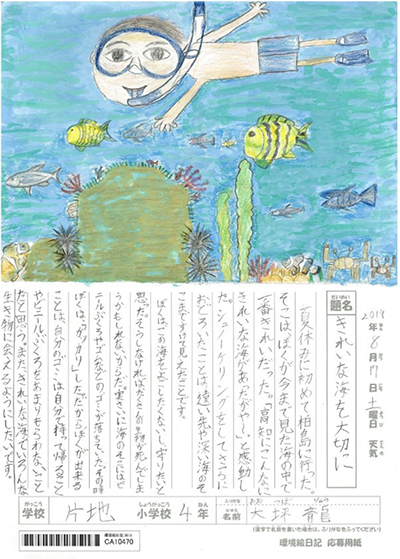 だいめい
題名
きれいな海を大切に
2019年8月17日土曜日 天気
夏休みに初めて柏島に行った。
そこはぼくが今まで見た海の中で
一番きれいだった。「高知にこんなに
きれいな海があったがや〜」と感動し
た。シューノーケリングをしてさらに
おどろいたことは、遠い先や深い海のそ
こまですけて見えたことです。
ぼくはこの海をよごしたくないし、守りたいと
思った。そうしなければたくさんの生物が死んでしま
うかもしれないからだ。実さいに海のそこにはビ
ニールぶくろやゴムなどのゴミが落ちていた。その時
ぼくは、「ガッカリ」しただからぼくが出来る
ことは、自分のゴミは自分で持って帰ること
やビニールぶくろをあまりもらわないこと
だと思う。また、きれいな海でいろんな
生き物に会えるようにしたいです。
がっこう
学校 片地
しょうがっこう ねん
小学校 4年
ふりがな おお つぼ
なまえ
名前 大坪
(漢字で名前を書いた場合は、ふりがなをふってください)
環境絵日記
CA10470
環境絵日記 応募用紙